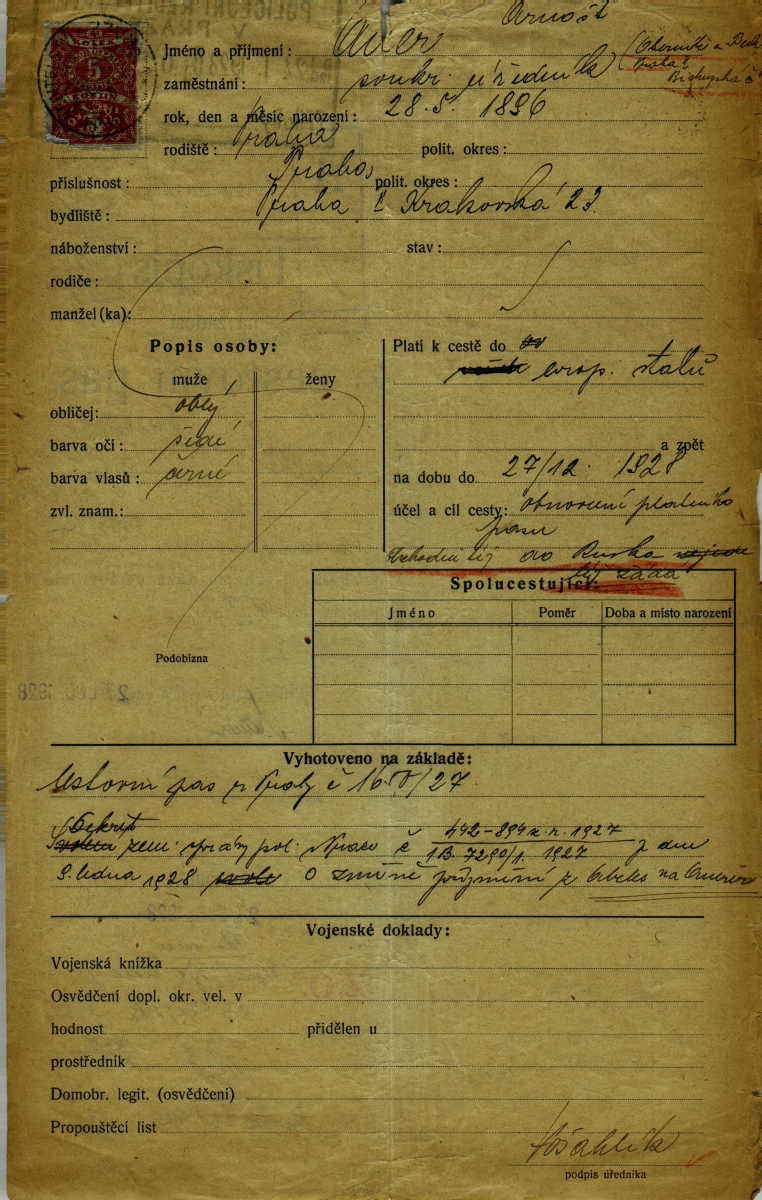 Arnošt
Jméno a příjmení: Auer
zaměstnání: soukr. úředník
rok, den a měsíc narození: 28. 5. 1896
rodiště: Praha polit. okres:
příslušnost: Praha, polit. okres:
bydliště: Praha II Krakovská 23.
náboženství: stav:
rodiče:
manžel(ka):
Popis osoby:
muže ženy
obličej: oblý
barva očí: šedé
barva vlasů: černé
zvl. znam.:
Podobizna
Platí k cestě do
evrop. států
a zpět
na dobu do 27/12. 1928
účel a cíl cesty: obnovení platného
pasu
do Ruska
též žádá
Spolucestující:
Jméno Poměr Doba a místo narození
Vyhotoveno na základě:
Cestovní pas z Prahy č 1650/27.
Dekret
zem. správy pol. v Praze č 442-894 z. r. 1927
1B. 7290/1. 1927 z dne
9. ledna 1928 o změně příjmení z na
Vojenské doklady:
Vojenská knížka
Osvědčení dopl. okr. vel. v
hodnost přidělen u
prostředník
Domobr. legit. (osvědčení)
Propouštěcí list
podpis úředníka